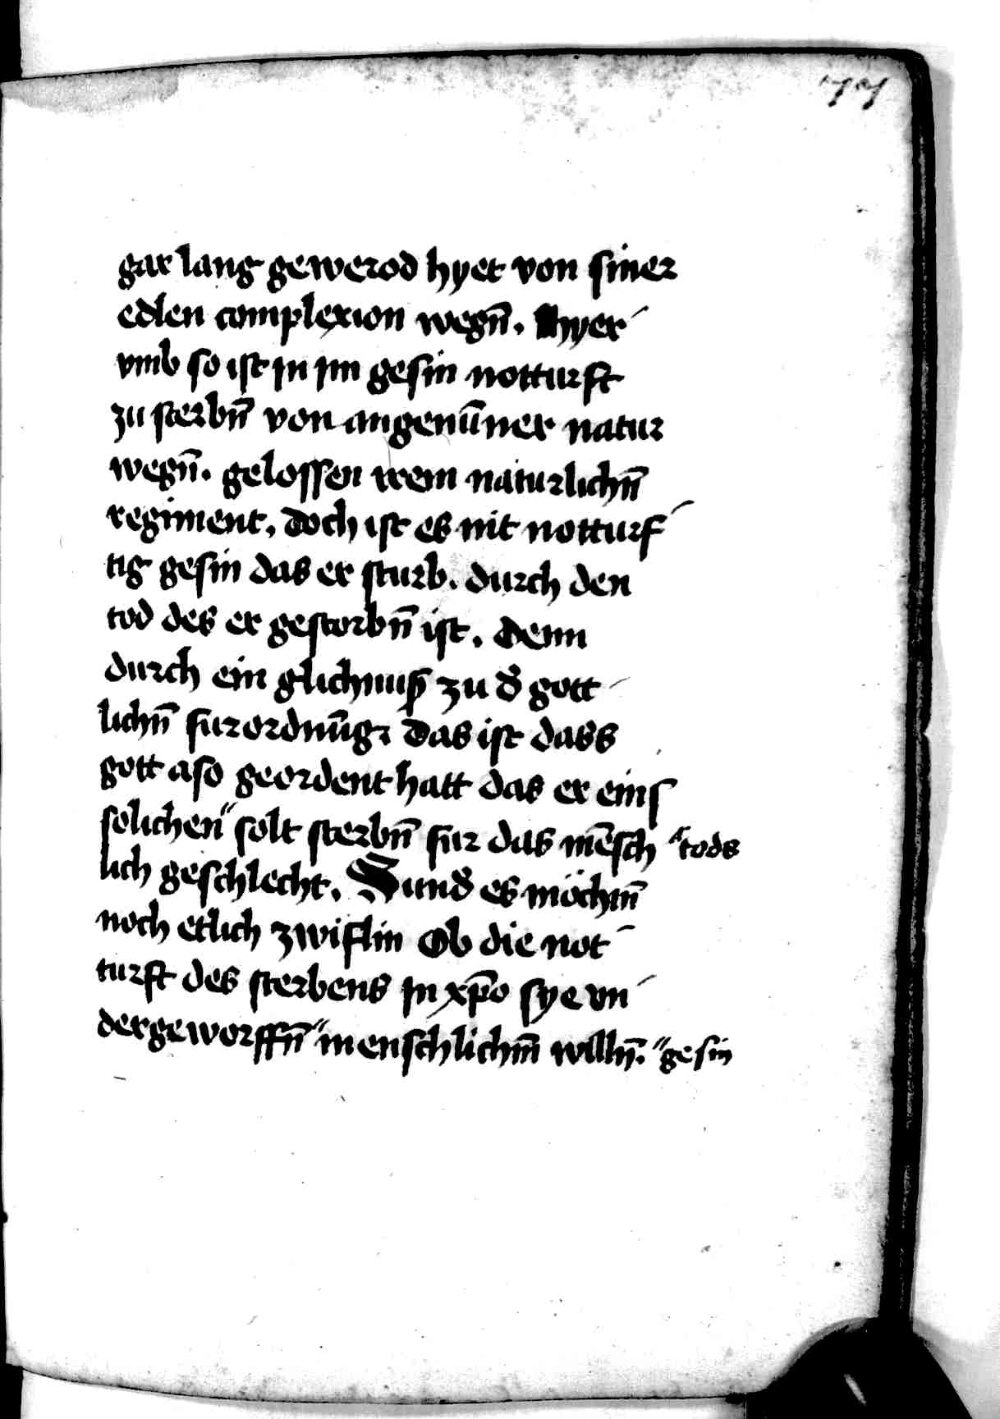 77
gar lang gewerod hyet von siner
edlen complexion wegn̄. hyer
vmb so ist jn jm gesin notturft
zu sterbn̄ von angenūner natur
wegn̄. gelossen irem naturlichn̄
regiment, doch ist es nit notturf
tig gesin das er sturb. durch den
tod des er gestorbn̄ ist. Denn
durch ein glichnuß zu d̄ gott
lichn̄ furordnūg das ist dass
gott aso geordent hatt das er eins
solichen" solt sterbn̄ fur das mēsch "tods
lich geschlecht. Sund̄ es möchtn̄
noch etlich zwiflin Ob die not
turft des sterbens jn xp̄o sye vn
dergeworffn̄ "menschlichm̄ willn̄. "gesin